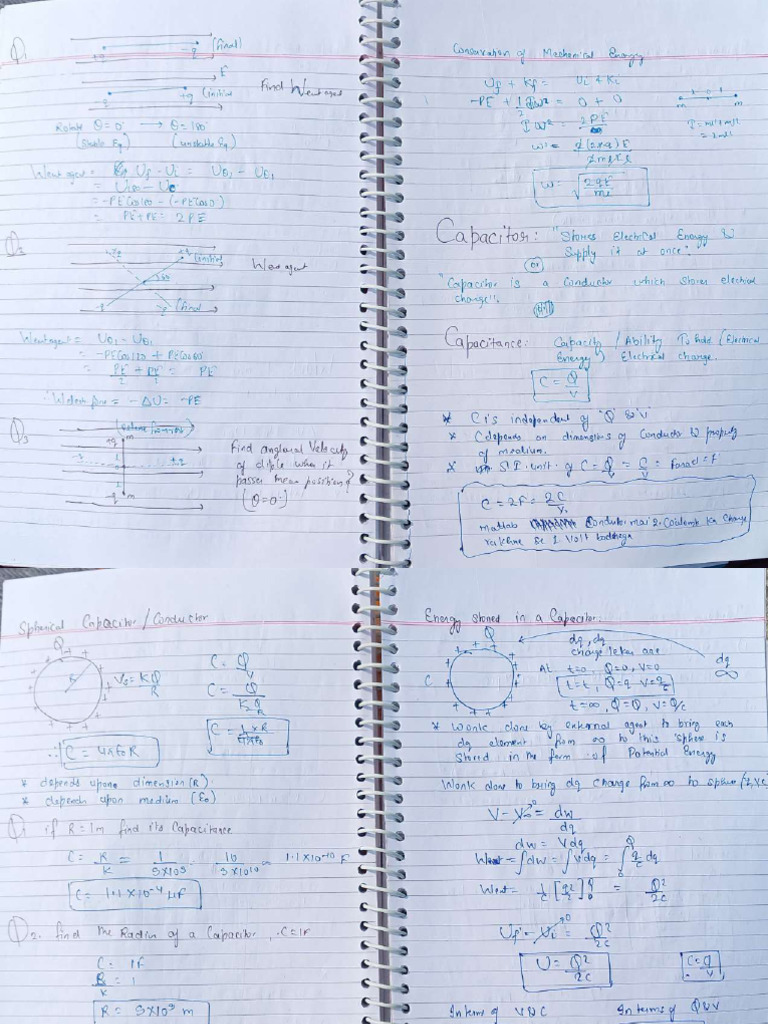 Q1
(final)
-q
E
+q (initial
-q
Find Wextagent
Rotate θ=0° → θ=180°
(Stable Eq) (unstable Eq)
Wextagent = Uf - Ui = Uθ2 - Uθ1
= U180 - U0
= -PECos180 - (-PECos0)
= PE+PE = 2PE
Q2
+q (initial
60
-q (final
Wextagent
Wextagent = Uθ2 - Uθ1
= -PECos120 + PECos60
= PE/2 + PE/2 = PE
∴ Welecforce = -ΔU = -PE
Q3
+q m
-q m
Find angular Velocity
of diple when it
passes mean position?
[θ=0°]
Conservation of Mechanical Energy
Uf + Kf = Ui + Ki
-PE + 1/2 Iω² = 0 + 0
Iω² = 2PE
I = ml²+ml²
= 2ml²
m m
ω = √(2qE/ml)
Capacitor: "Stores Electrical Energy &
Supply it at once".
(or)
"Capacitor is a Conductor which stores electrical
charge".
Capacitance: Capacity / Ability To hold (Electrical
Energy) Electrical charge.
C = Q/V
* C is independent of "Q" & "V"
* C depends on dimensions of Conductor & property
of medium.
* S.I. unit of C = Q/V = C/V = Farad = F
C = 2F = 2C/V
matlab Conductor mai 2 Coulomb Ka charge
rakhne se 1 Volt badhega
Spherical Capacitor / Conductor
Q
R
V = KQ/R
C = Q/V
C = Q/(KQ/R)
C = 1×R/(1/4πε0)
∴ C = 4πε0R
* depends upon dimension (R).
* depends upon medium (ε0)
Q1 if R=1m find its Capacitance
C = R/K = 1/9×10⁹ = 10/9×10¹⁰ = 1.1×10⁻¹⁰ F
C = 1.1×10⁻⁴ μF
Q2. find the Radius of a Capacitor, C=1F
C = 1F
R/K = 1
R = 9×10⁹ m
Energy stored in a Capacitor:
Q
C
dq, dq
charge leker are
dq
∞
At t=0, Q=0, V=0
t=t, Q=q V=q/c
t=∞, Q=Q, V=Q/c
* Work done by external agent to bring each
dq element from ∞ to this sphere is
stored in the form of Potential Energy
Work done to bring dq charge from ∞ to sphere
V - V∞ = dw/dq
dw = Vdq
Wext = ∫dw = ∫Vdq = ∫ q/c dq
Wext = 1/c [q²/2] = Q²/2C
Uf - Ui = Q²/2C
U = Q²/2C
C = q/V
In terms of V & C
In terms of Q & V